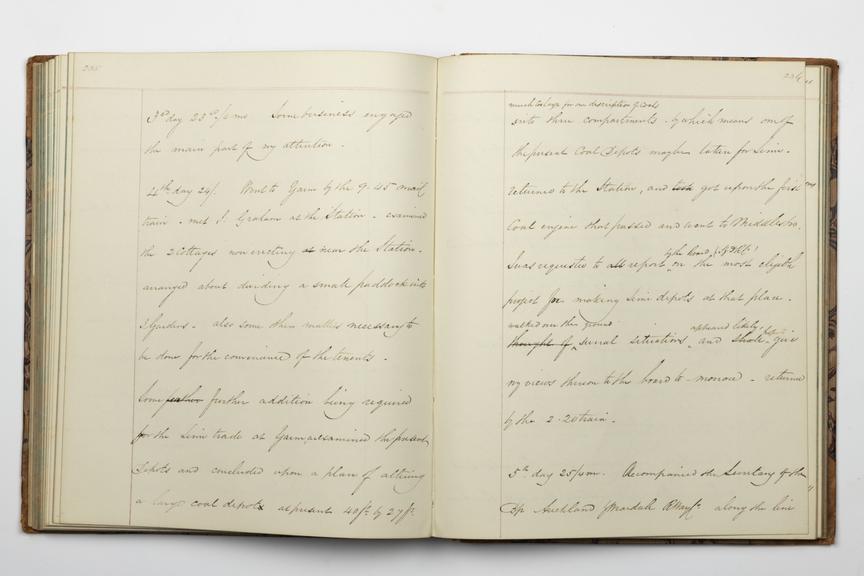 235
3rd day 23rd/5 mo Some business engaged
the main part of my attention.
4th day 24/. Went to Yarm by the 9.45 mail
train - met J. Graham at the Station - examined
the 2 Cottages now erecting at near the Station -
arranged about dividing a small paddock into
2 Gardens - also some other matters necessary to
be done for the convenience of the tenents.
Some further further addition being required
for the Lime trade at Yarm, examined the present
Depots and concluded upon a plan of altering
a large coal depot as present 40ft by 27ft
much too large for one description of Coals
into three compartments - by which means one of
the present Coal Depots may be taken for Lime.
returned to the Station, and took got upon the first
Coal engine that passed and went to Middlesbro.
I was requested to report on the most eligible
by the board
project for making Lime depots at that place.
walked over the ground
thought of several situations and shall give
appeared likely
my views thereon to the board to-morrow - returned
by the 2.20 train.
5th day 25/5 mo. Accompanied the Secretary of the
Bp Auckland & Weardale Rway along the line